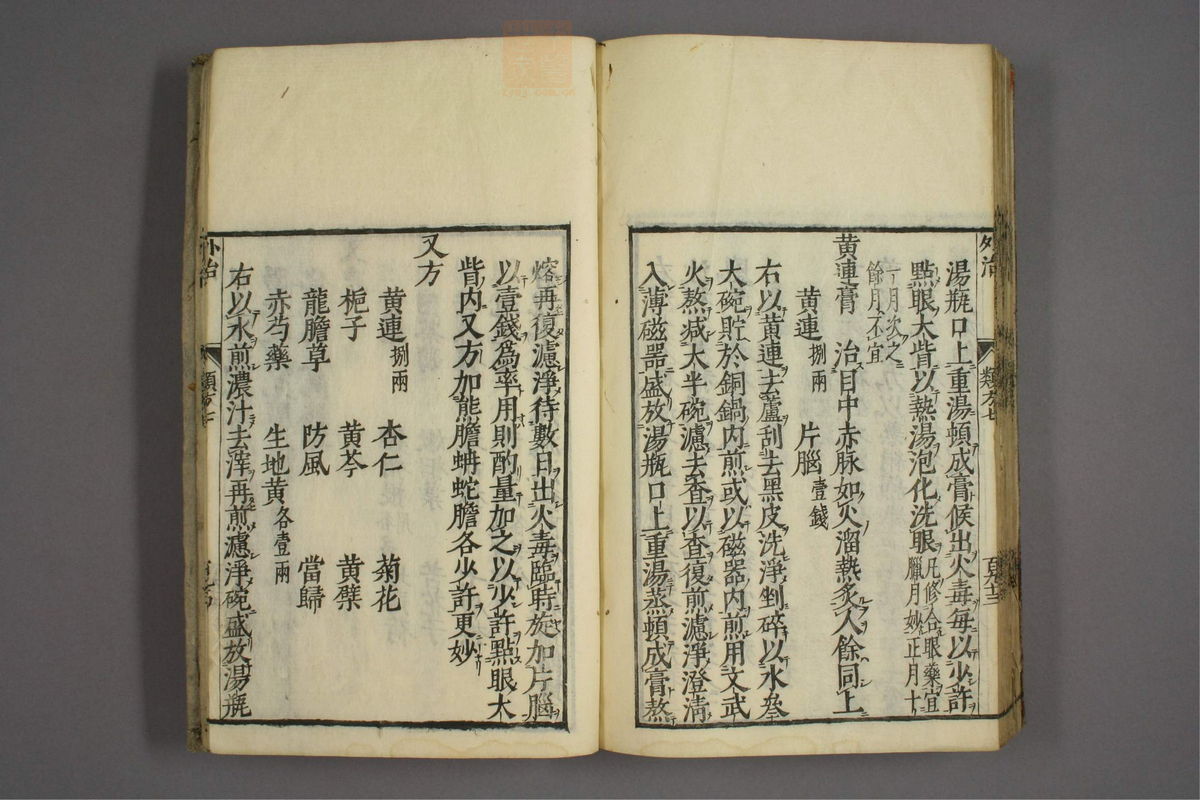 外治
類方七
百九十三
湯瓶口上重湯頓成膏候出火毒每以少許
點眼大眥以熱湯泡化洗眼凡修合眼藥宜臘月妙正月十
一月次之餘月不宜
黃連膏 治目中赤脉如火溜熱炙人餘同上
黃連捌兩 片腦壹錢
右以黃連去蘆刮去黑皮洗淨剉碎以水叄
大碗貯於銅鍋內煎或以磁器內煎用文武
火熬減大半碗濾去查以查復煎濾淨澄清
入薄磁器盛放湯瓶口上重湯蒸頓成膏熬
熔再復濾淨待數日出火毒臨時旋加片腦
以壹錢爲率用則酌量加之以少許點眼大
眥內又方加熊膽蚺蛇膽各少許更妙
又方
黃連捌兩 杏仁 菊花
梔子 黃芩 黃檗
龍膽草 防風 當歸
赤芍藥 生地黃各壹兩
右以水煎濃汁去滓再煎濾淨碗盛放湯瓶
外治
類方七
百九十四